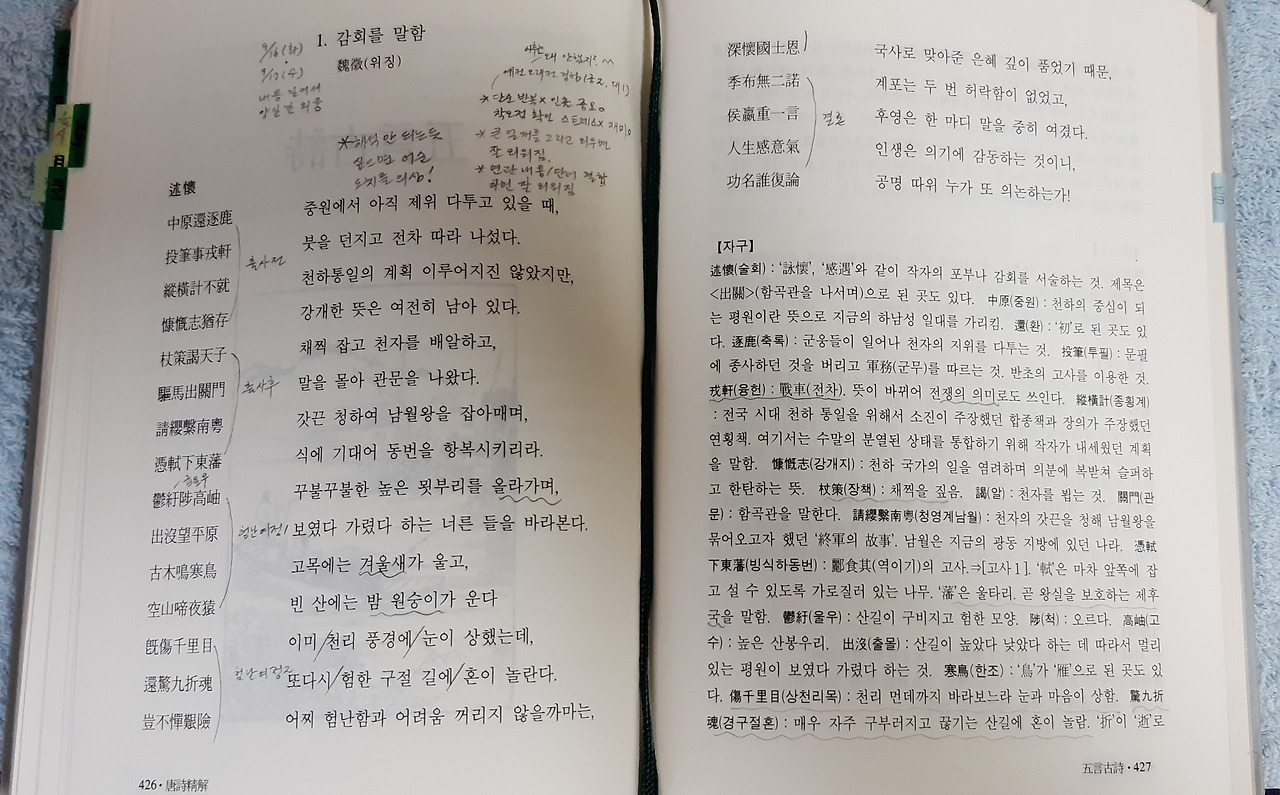 1. 감회를 말함
魏徵(위징)
9/16 (화)
9/17 (수)
내용 길어서
양일간 외움
* 단순반복x 인출 중요。
* 해석 안 되는 듯
싶으면 어순
도치를 의심!
잘 외워짐.
* 연관 내용/단어 결합
하면 잘 외워짐
述懷
中原還逐鹿 중원에서 아직 제위 다투고 있을 때,
投筆事戎軒 붓을 던지고 전차 따라 나섰다.
출사전
縱橫計不就 천하통일의 계획 이루어지진 않았지만,
慷慨志猶存 강개한 뜻은 여전히 남아 있다.
杖策謁天子 채찍 잡고 천자를 배알하고,
驅馬出關門 말을 몰아 관문을 나왔다.
출사후
請纓繫南粵 갓끈 청하여 남월왕을 잡아매며,
憑軾下東藩 식에 기대어 동번을 항복시키리라.
鬱紆陟高岫 꾸불꾸불한 높은 묏부리를 올라가며,
出沒望平原 험난여정1 보였다 가렸다 하는 너른 들을 바라본다.
古木鳴寒鳥 고목에는 겨울새가 울고,
空山啼夜猿 빈 산에는 밤 원숭이가 운다
旣傷千里目 이미/천리 풍경에/눈이 상했는데,
還驚九折魂 또다시/험한 구절 길에/혼이 놀란다.
豈不憚艱險 어찌 험난함과 어려움 꺼리지 않을까마는,
426 • 唐詩精解
深懷國士恩 국사로 맞아준 은혜 깊이 품었기 때문,
季布無二諾 계포는 두 번 허락함이 없었고,
侯嬴重一言 후영은 한 마디 말을 중히 여겼다.
결론
人生感意氣 인생은 의기에 감동하는 것이니,
功名誰復論 공명 따위 누가 또 의논하는가!
【자구】
述懷(술회) : ‘詠懷’, ‘感遇’와 같이 작자의 포부나 감회를 서술하는 것. 제목은
<出關>(함곡관을 나서며)으로 된 곳도 있다. 中原(중원) : 천하의 중심이 되
는 평원이란 뜻으로 지금의 하남성 일대를 가리킴. 還(환) : ‘初’로 된 곳도 있
다. 逐鹿(축록) : 군웅들이 일어나 천자의 지위를 다투는 것. 投筆(투필) : 문필
에 종사하던 것을 버리고 軍務(군무)를 따르는 것. 반초의 고사를 이용한 것.
戎軒(융헌) : 戰車(전차). 뜻이 바뀌어 전쟁의 의미로도 쓰인다. 縱橫計(종횡계)
: 전국 시대 천하 통일을 위해서 소진이 주장했던 합종책과 장의가 주장했던
연횡책. 여기서는 수말의 분열된 상태를 통합하기 위해 작자가 내세웠던 계획
을 말함. 慷慨志(강개지) : 천하 국가의 일을 염려하며 의분에 복받쳐 슬퍼하
고 한탄하는 뜻. 杖策(장책) : 채찍을 짚음. 謁(알) : 천자를 뵙는 것. 關門(관
문) : 함곡관을 말한다. 請纓繫南粵(청영계남월) : 천자의 갓끈을 청해 남월왕을
묶어오고자 했던 ‘終軍의 故事’. 남월은 지금의 광동 지방에 있던 나라. 憑軾
下東藩(빙식하동번) : 酈食其(역이기)의 고사.⇒[고사 1]. ‘軾’은 마차 앞쪽에 잡
고 설 수 있도록 가로질러 있는 나무. ‘藩’은 울타리. 곧 왕실을 보호하는 제후
국을 말함. 鬱紆(울우) : 산길이 구비지고 험한 모양. 陟(척) : 오르다. 高岫(고
수) : 높은 산봉우리. 出沒(출몰) : 산길이 높았다 낮았다 하는 데 따라서 멀리
있는 평원이 보였다 가렸다 하는 것. 寒鳥(한조) : ‘鳥’가 ‘雁’으로 된 곳도 있
다. 傷千里目(상천리목) : 천리 먼데까지 바라보느라 눈과 마음이 상함. 驚九折
魂(경구절혼) : 매우 자주 구부러지고 끊기는 산길에 혼이 놀람. ‘折’이 ‘逝’로
五言古詩 • 427